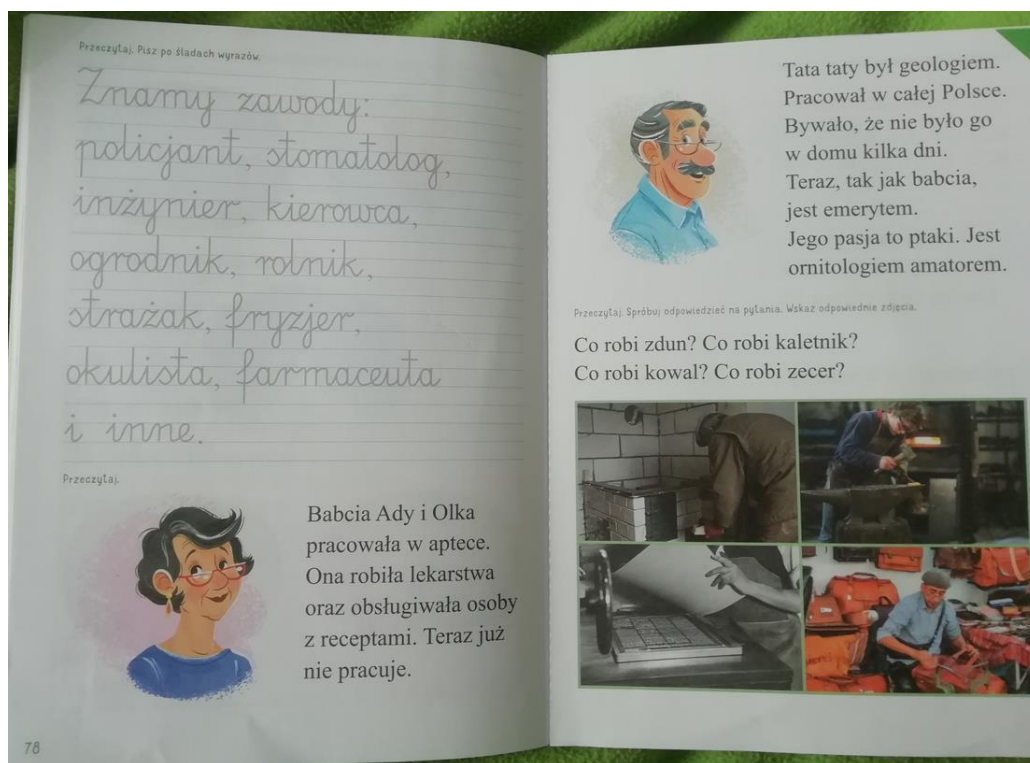 Przeczytaj. Pisz po śladach wyrazów.
Znamy zawody:
policjant, stomatolog,
inżynier, kierowca,
ogrodnik, rolnik,
strażak, fryzjer,
okulista, farmaceuta
i inne.
Przeczytaj.
Babcia Ady i Olka
pracowała w aptece.
Ona robiła lekarstwa
oraz obsługiwała osoby
z receptami. Teraz już
nie pracuje.
78
Tata taty był geologiem.
Pracował w całej Polsce.
Bywało, że nie było go
w domu kilka dni.
Teraz, tak jak babcia,
jest emerytem.
Jego pasja to ptaki. Jest
ornitologiem amatorem.
Przeczytaj. Spróbuj odpowiedzieć na pytania. Wskaż odpowiednie zdjęcia.
Co robi zdun? Co robi kaletnik?
Co robi kowal? Co robi zecer?